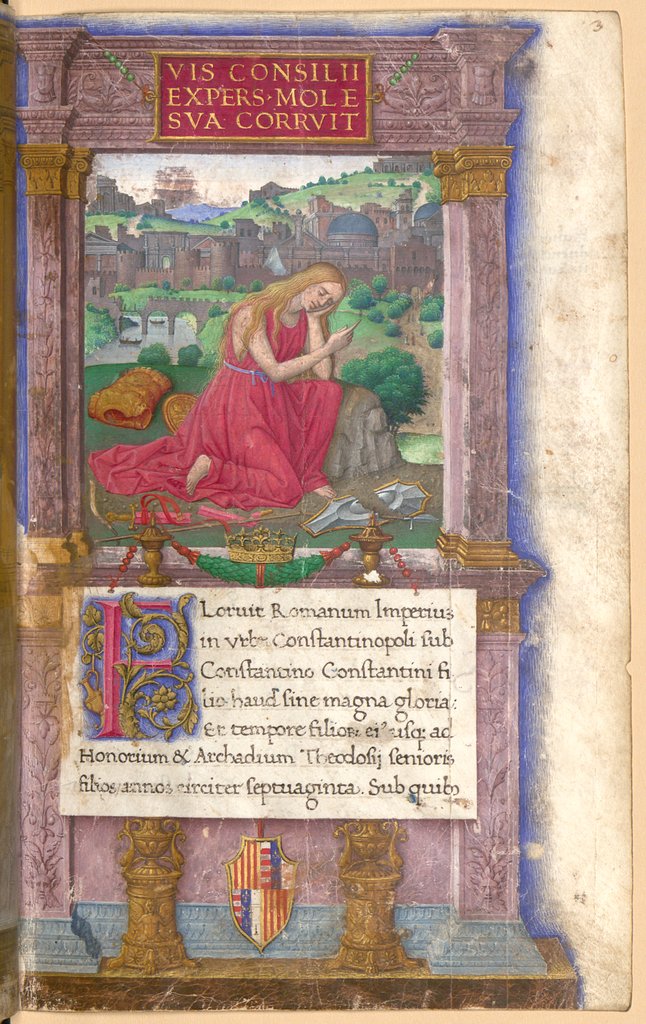 3
VIS CONSILII
EXPERS·MOLE
SVA CORRVIT
FLoruit Romanum Imperiuȝ
in vrbe Constantinopoli sub
Constantino Constantini fi
lio haud sine magna gloria:
Et tempore filioꝝ ei' usqꝫ ad
Honorium & Archadium Theodosij senioris
filios annos circiter septuaginta. Sub quibꝰ